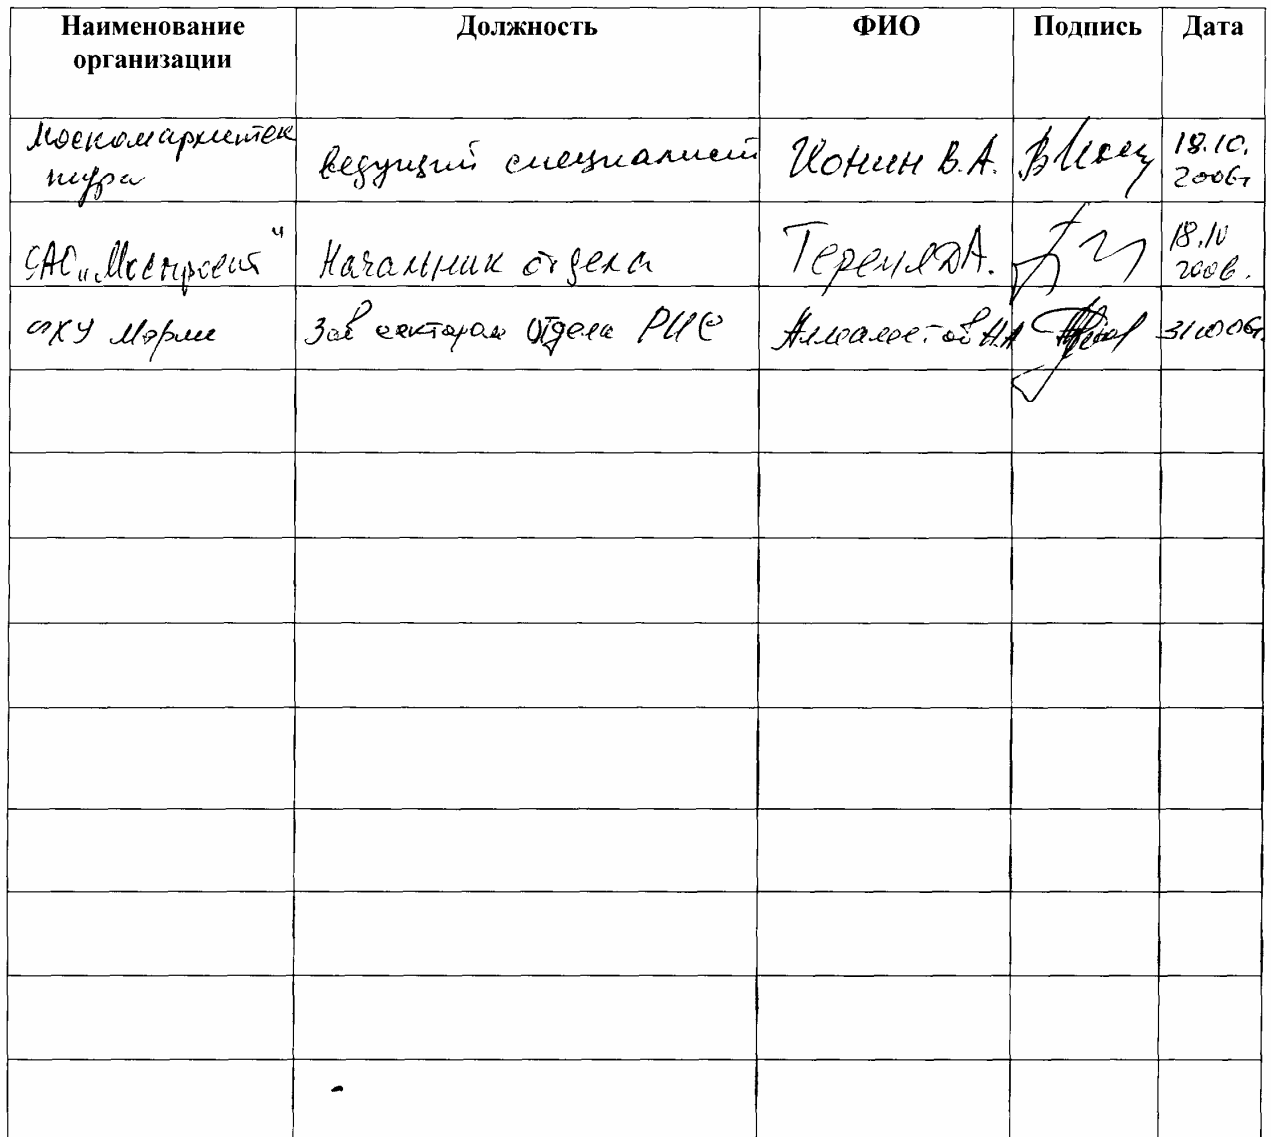 Наименование организации Должность ФИО Подпись Дата
Москомархитек ведущий специалист Ионин В.А. 18.10.
тура 2006г
ОАО „Моспроект" Начальник отдела 18.10
2006.
ФХУ Мэрии Зав сектором Отдела РИС 31.10.06г.